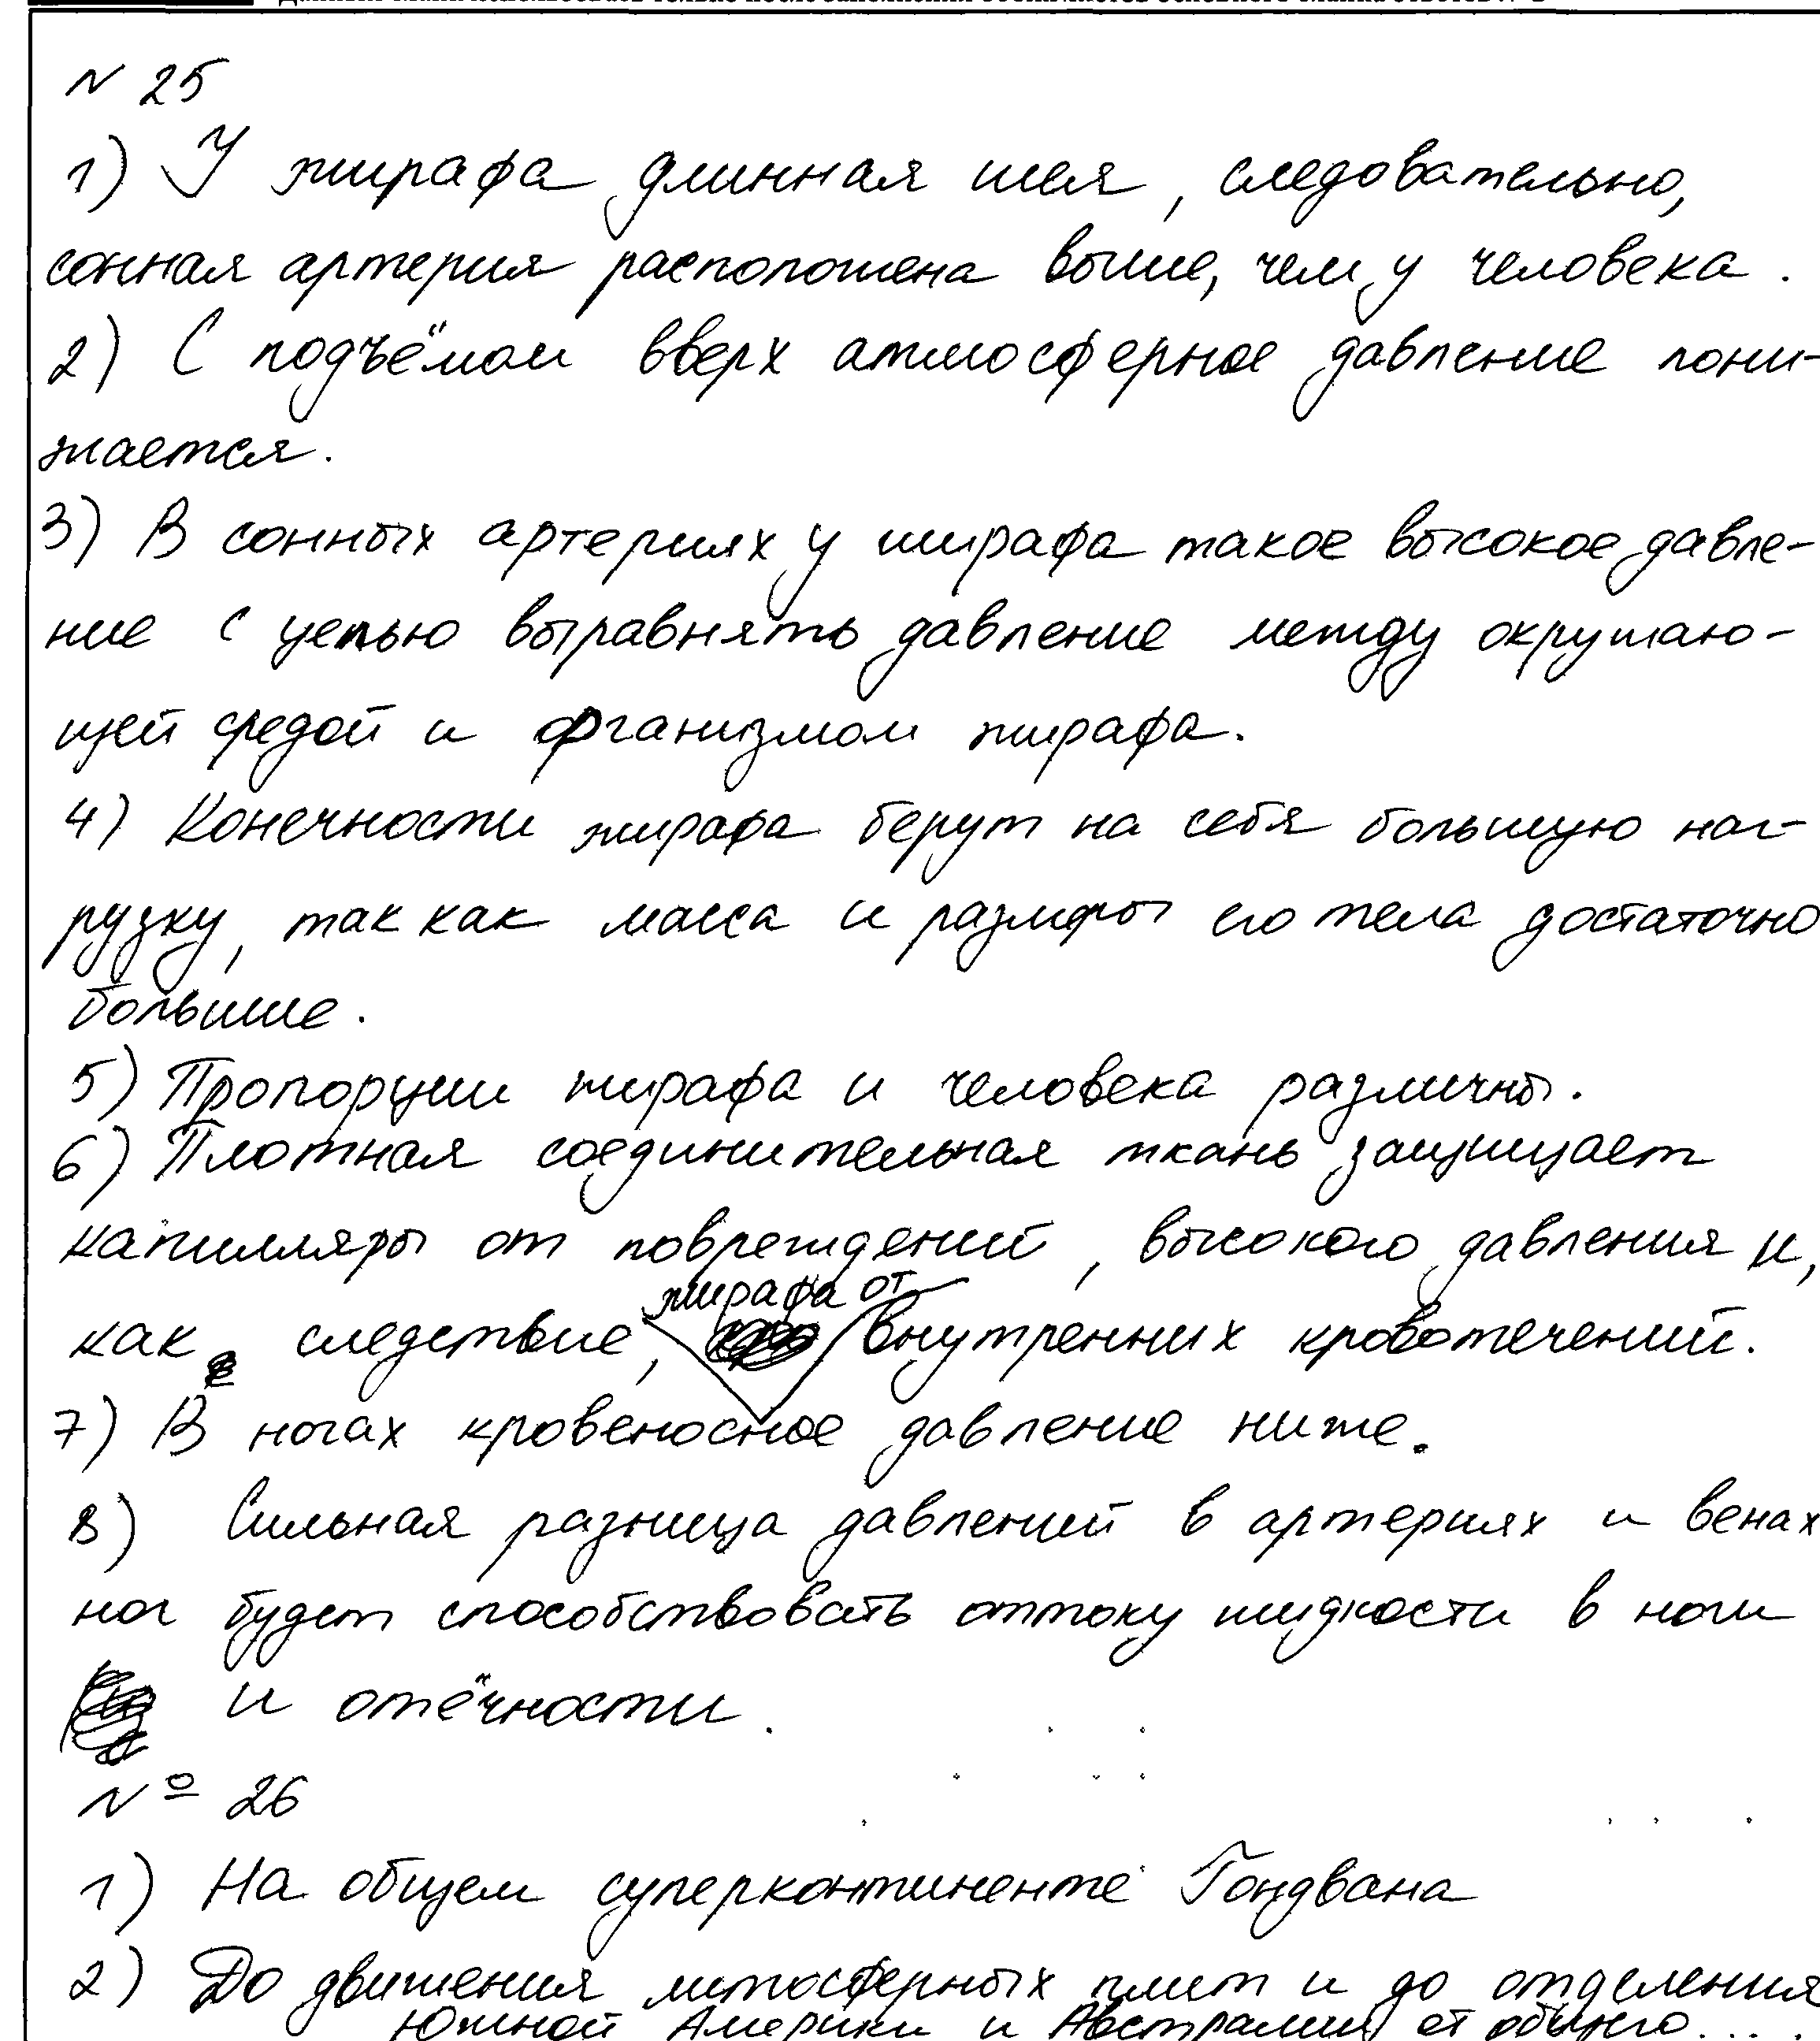 N 25
1) У жирафа длинная шея, следовательно,
сонная артерия расположена выше, чем у человека.
2) С подъёмом вверх атмосферное давление пони-
жается.
3) В сонных артериях у жирафа такое высокое давле-
ние с целью выравнять давление между окружаю-
щей средой и организмом жирафа.
4) Конечности жирафа берут на себя большую наг-
рузку, так как масса и размеры его тела достаточно
большие.
5) Пропорции жирафа и человека различны.
6) Плотная соединительная ткань защищает
капилляры от повреждений, высокого давления и,
как следствие, жирафа от внутренних кровотечений.
7) В ногах кровеносное давление ниже.
8) Сильная разница давлений в артериях и венах
ног будет способствовать оттоку жидкости в ноги
и отёчности.
№ 26
1) На общем суперконтиненте Гондвана
2) До движения литосферных плит и до отделения
Южной Америки и Австралии от общего...